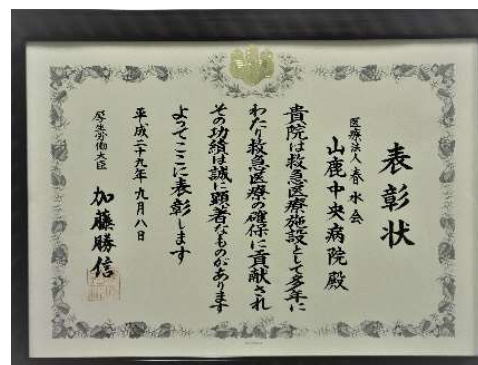 表彰状
医療法人 春水会
山鹿中央病院殿
貴院は救急医療施設として多年に
わたり救急医療の確保に貢献され
その功績は誠に顕著なものがあります
よってここに表彰します
平成二十九年九月八日
厚生労働大臣 加藤勝信